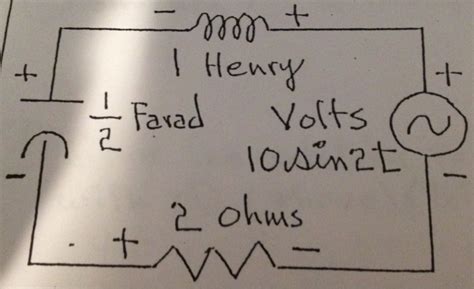 − +
1 Henry
+ +
1/2 Farad
Volts
10 sin2t
− −
2 ohms
+ −